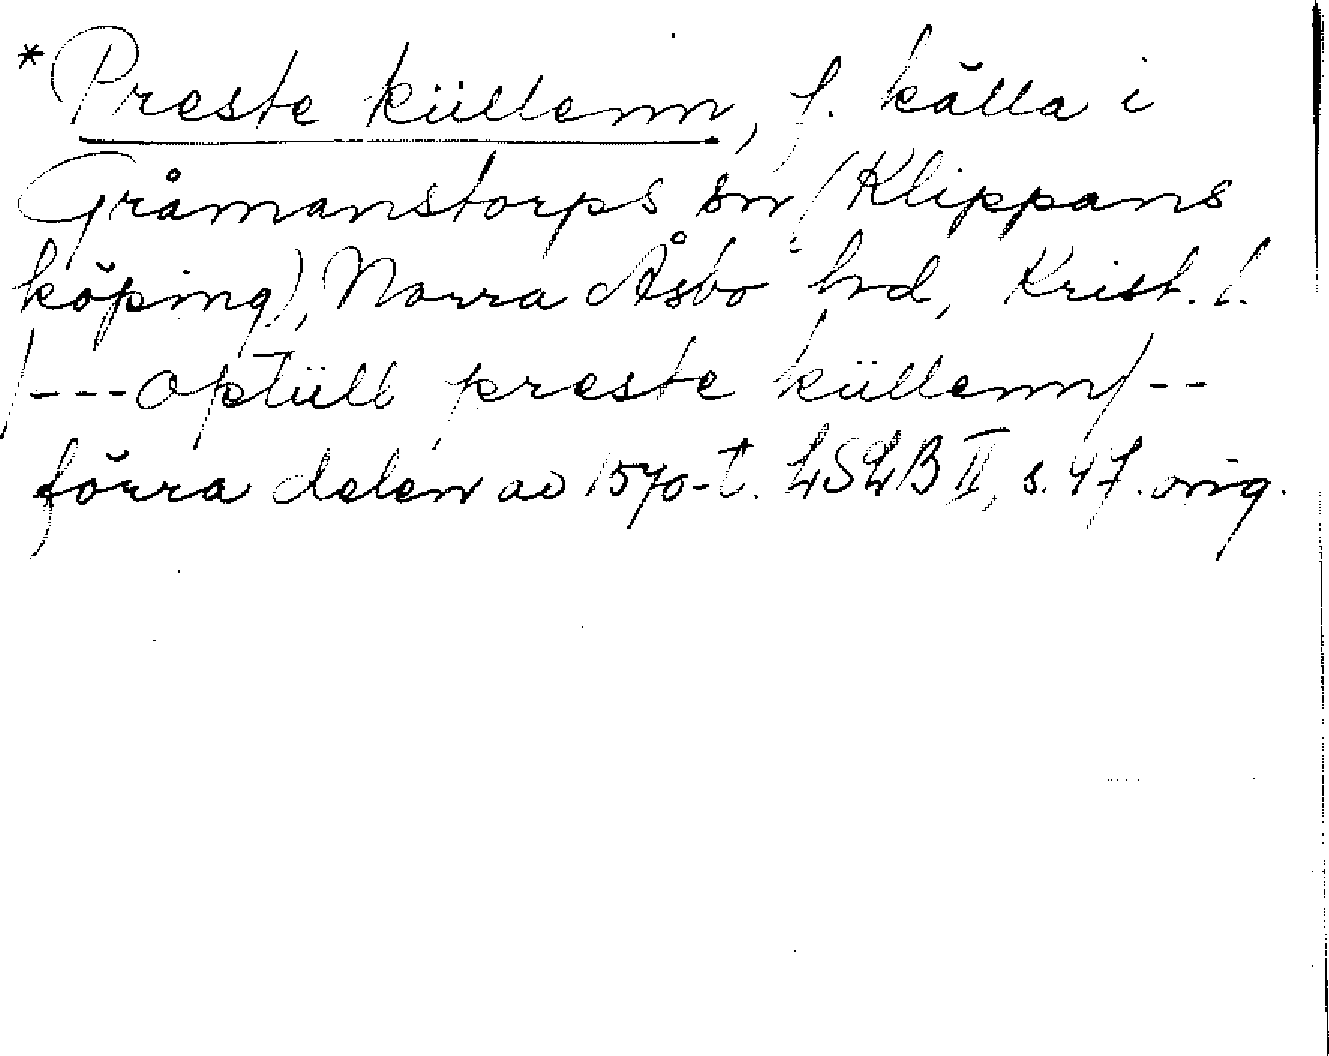 *Preste küllenn, f. källa i
Gråmanstorps sn (Klippans
köping), Norra Åsbo hrd, Krist. l.
/---optüll preste küllenn/--
förra delen av 1570-t. LSLB II, s. 47. orig.